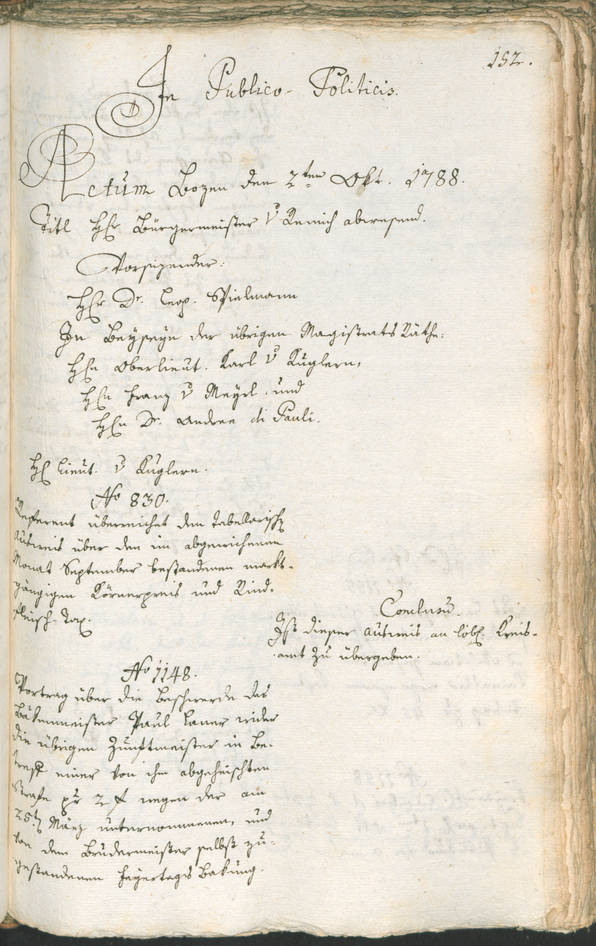 152.
In Publico-Politicis.
Actum Bozen den 2ten Okt. 1788.
Titl Hr. Bürgermeister v Remich abwesend.
Vorsizender:
Hr Dr. Leop. Spielmann
In Beyseyn der übrigen Magistrats Räthe:
Hrn Oberlieut. Karl v Kuglern,
Hrn Franz v Mayrl. und
Hrn Dr. Andree di Pauli.
Hr Lieut. v Kuglern.
No 830.
Referent überreichet den tabellarisch
Ausweis über den im abgewichenen
Monat September bestandenen markt-
gängigen Körnerpreis und Rind-
fleisch-Tax.
Conclusu.
Ist dieser Ausweis an löbl. Kreis-
amt zu übergeben.
No 1148.
Vortrag über die Beschwerde des
Bäkenmeister Paul Laner wider
die übrigen Zunftmeister in Be-
tref einer von ihm abgeheischten
Strafe pr 2 f wegen der am
25ten März unternommenen, und
von dem Brudermeister selbst zu-
gestandenen Feyertags Bakung.